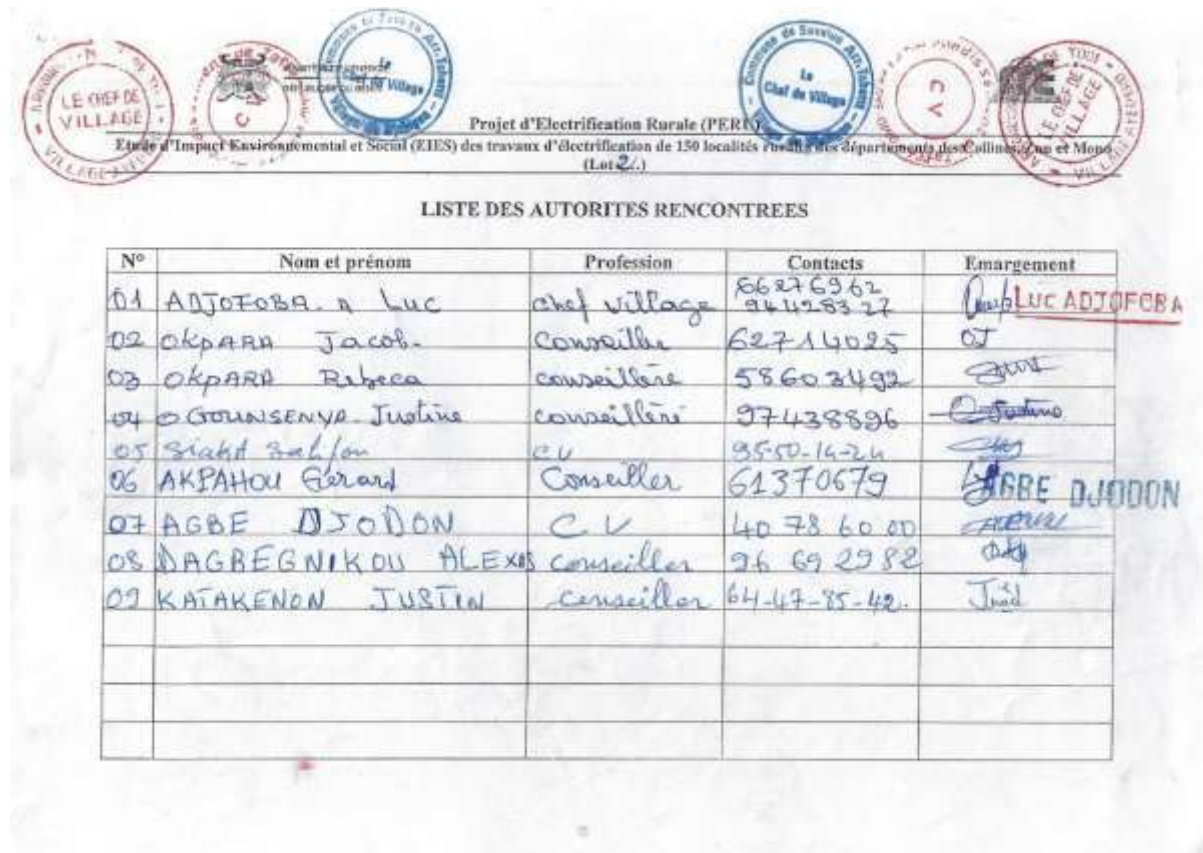 LE CHEF DE VILLAGE
Le Chef de Village
Commune de Savalou
Le Chef de Village
CV
LE CHEF DE VILLAGE
Projet d'Electrification Rurale
Etude d'Impact Environnemental et Social (EIES) des travaux d'électrification de 150 localités rurales des départements des Collines, Zou et Mono
(Lot 2.)
LISTE DES AUTORITES RENCONTREES
N° Nom et prénom Profession Contacts Emargement
01 ADJOFOBA. n Luc chef village 66276962 94428327 LUC ADJOFOBA
02 OKPARA Jacob. Conseiller 62714025 OJ
03 OKPARA Rebeca conseillère 58603492
04 OGOUNSENYA Justine conseillère 97438896 Justine
05 CV 95-50-14-24
06 AKPAHOU Gerard Conseiller 61370679 AGBE DJODON
07 AGBE DJODON C V 40 78 60 00
08 DAGBEGNIKOU ALEXIS conseiller 96 69 29 82
09 KATAKENON JUSTIN conseiller 64-47-85-42.